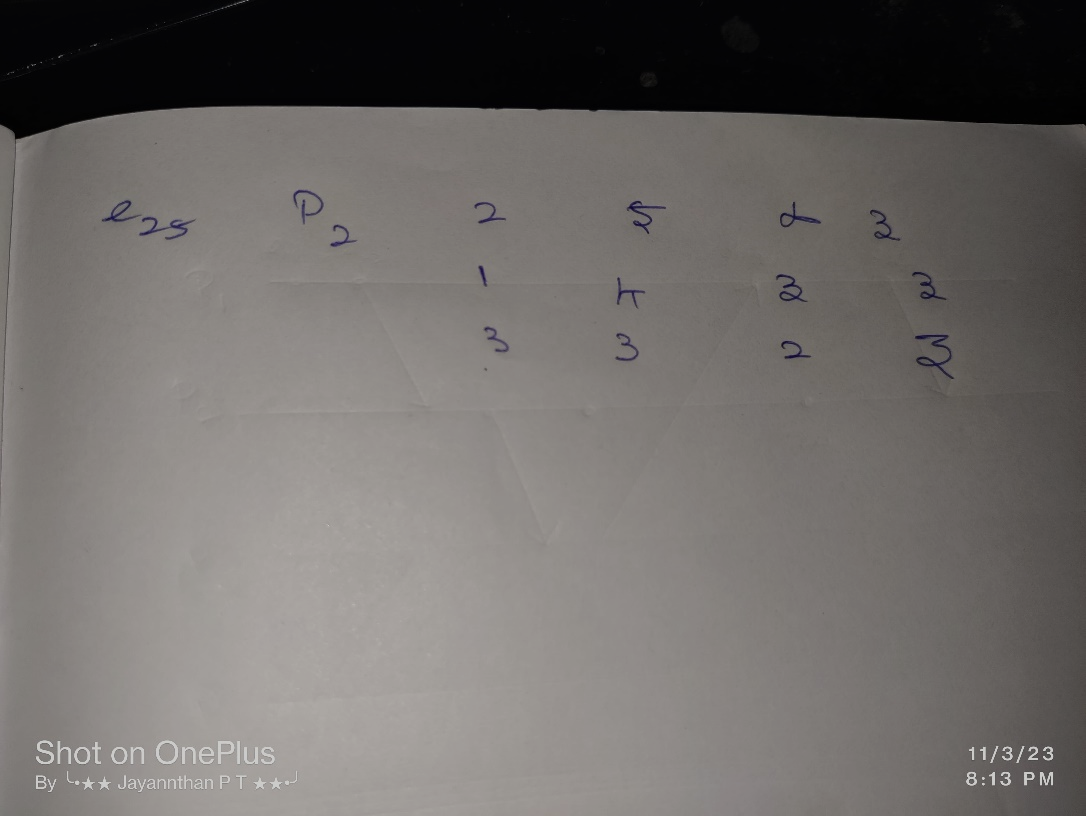 e25 P2 2 5 2
1 3 3
3 3 2
Shot on OnePlus
By ╰•★★ Jayannthan P T ★★•╯
11/3/23
8:13 PM